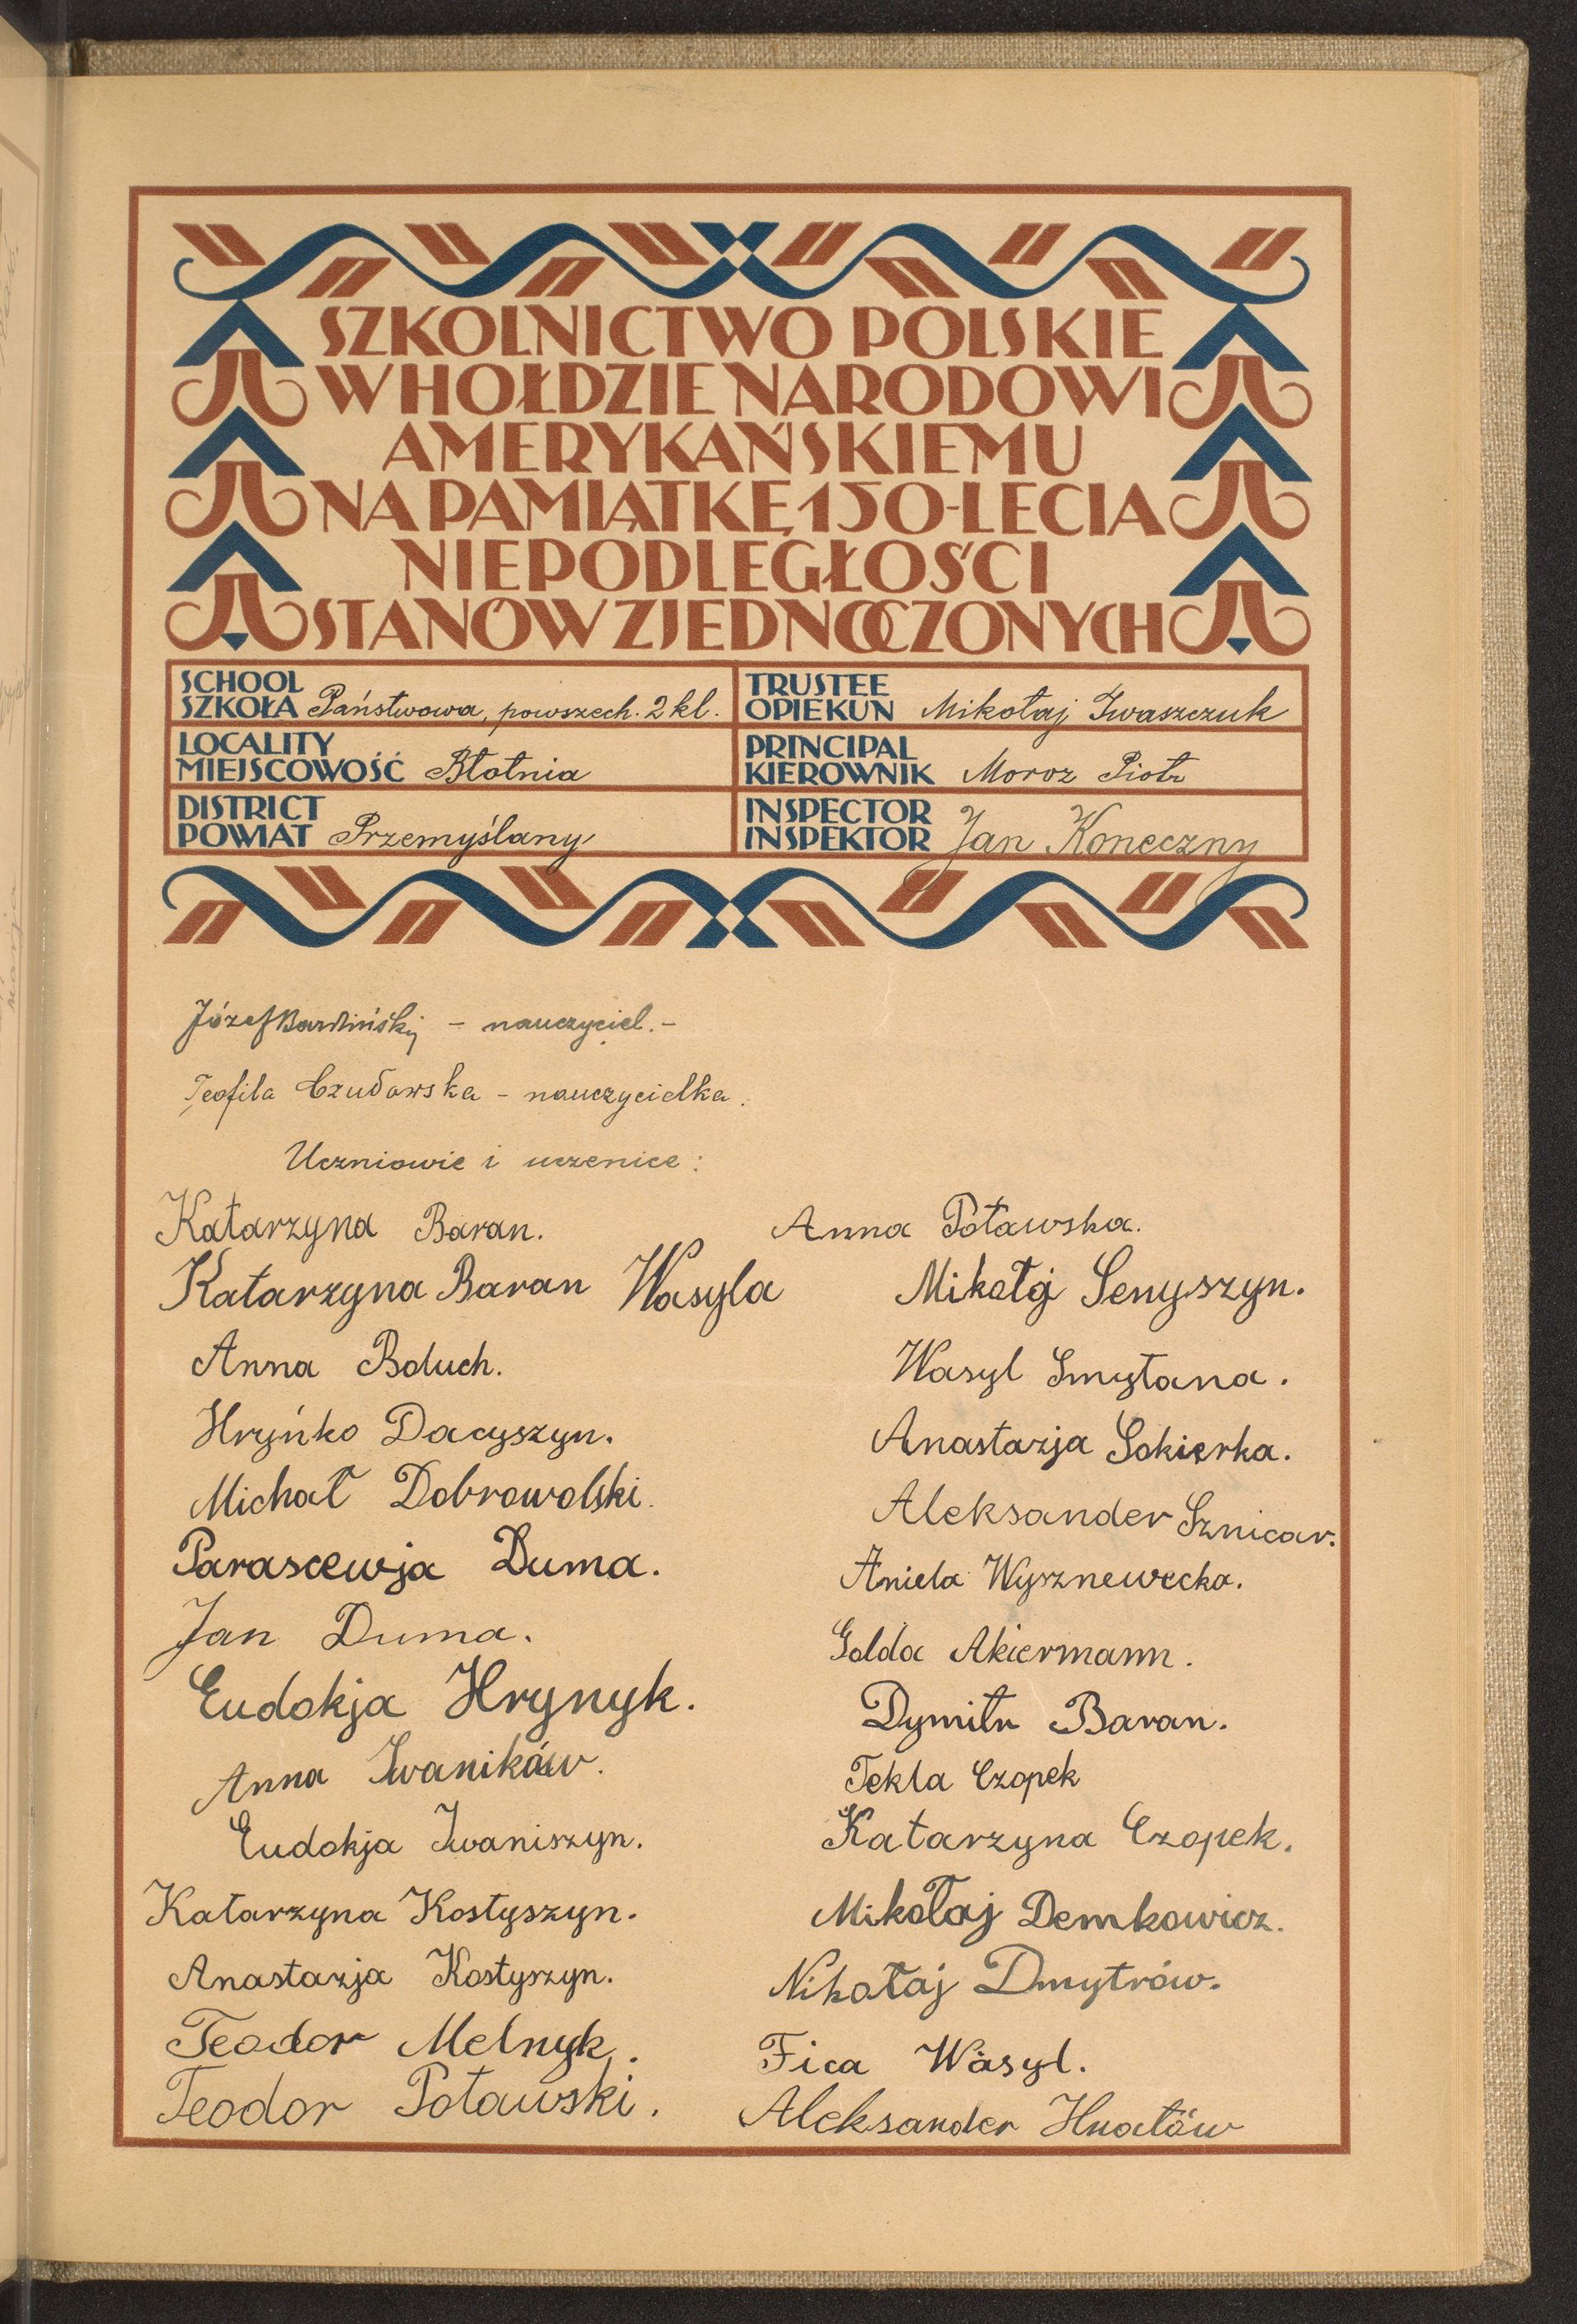 SZKOLNICTWO POLSKIE
W HOŁDZIE NARODOWI
AMERYKAŃSKIEMU
NA PAMIĄTKĘ 150-LECIA
NIEPODLEGŁOŚCI
STANÓW ZJEDNOCZONYCH
SCHOOL
SZKOŁA Państwowa, powszech. 2 kl.
TRUSTEE
OPIEKUN Mikołaj Iwaszczuk
LOCALITY
MIEJSCOWOŚĆ Błotnia
PRINCIPAL
KIEROWNIK Moroz Piotr
DISTRICT
POWIAT Przemyślany
INSPECTOR
INSPEKTOR Jan Koneczny
Józef - nauczyciel.-
Teofila Czudowska - nauczycielka.
Uczniowie i uczenice:
Katarzyna Baran.
Katarzyna Baran Wasyla
Anna Boluch.
Hryńko Dacyszyn.
Michał Dobrowolski.
Parascewja Duma.
Jan Duma.
Eudokja Hrynyk.
Anna Iwaników.
Eudokja Iwaniszyn.
Katarzyna Kostyszyn.
Anastazja Kostyszyn.
Teodor Melnyk.
Teodor Poławski.
Anna Poławska.
Mikołj Senyszyn.
Wasyl Smytana.
Anastazja Sokierka.
Aleksander Sznicar.
Aniela Wysznewecka.
Golda Akiermann.
Dymitr Baran.
Tekla Czopek
Katarzyna Czopek.
Mikołaj Demkowicz.
Nikołaj Dmytrów.
Fica Wasyl.
Aleksander Hnatów